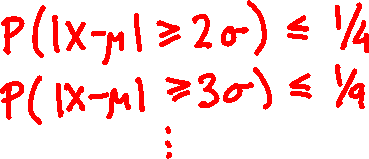 P(|X-μ| ⩾ 2σ) ≤ 1/4
P(|X-μ| ⩾ 3σ) ≤ 1/9
⋮